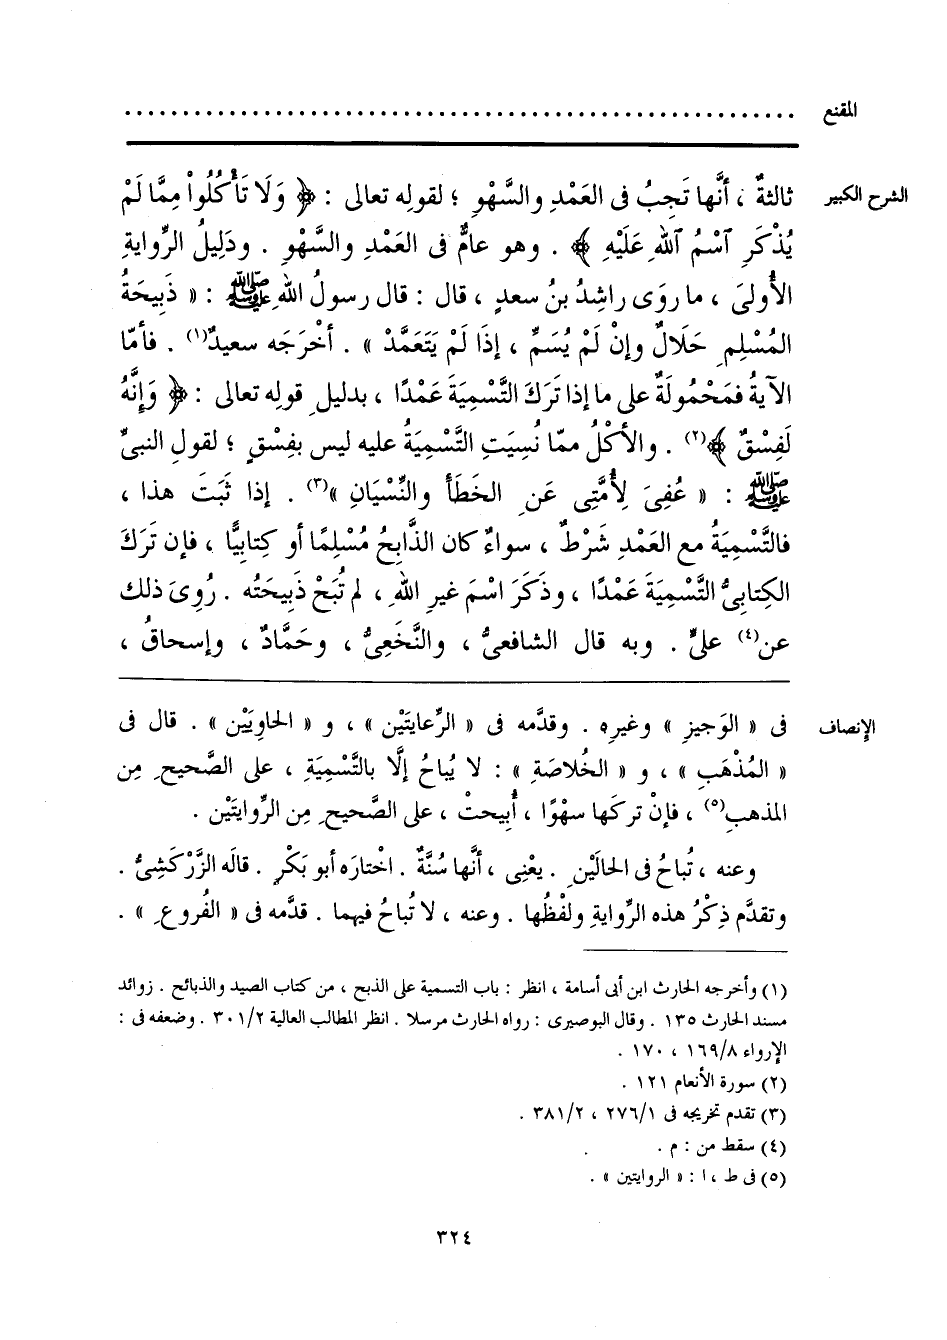 المقنع ......................................................
الشرح الكبير ثالثةٌ ، أنَّها تَجِبُ فى العَمْدِ والسَّهْوِ ؛ لقولِه تعالى : ﴿ وَلَا تَأْكُلُواْ مِمَّا لَمْ
يُذْكَرِ ٱسْمُ ٱللهِ عَلَيْهِ ﴾ . وهو عامٌّ فى العَمْدِ والسَّهْوِ . ودَلِيلُ الرِّوايةِ
الأُولىَ ، ما روَى راشِدُ بنُ سعدٍ ، قال : قال رسولُ اللهِ ﷺ : « ذَبِيحَةُ
المُسْلِمِ حَلَالٌ وإنْ لَمْ يُسَمِّ ، إذَا لَمْ يَتَعَمَّدْ » . أخْرَجَه سعيدٌ(١) . فأمّا
الآيةُ فمَحْمُولَةٌ على ما إذا تَرَكَ التَّسْمِيَةَ عَمْدًا ، بدليلِ قولِه تعالى : ﴿ وَإِنَّهُ
لَفِسْقٌ ﴾(٢) . والأكْلُ ممّا نُسِيَتِ التَّسْمِيَةُ عليه ليس بفِسْقٍ ؛ لقولِ النبىِّ
ﷺ : « عُفِىَ لِأُمَّتِى عَنِ الخَطَأ والنِّسْيَانِ »(٣) . إذا ثَبَتَ هذا ،
فالتَّسْمِيَةُ مع العَمْدِ شَرْطٌ ، سواءٌ كان الذَّابِحُ مُسْلِمًا أو كِتابِيًّا ، فإن تَرَكَ
الكِتابِىُّ التَّسْمِيَةَ عَمْدًا ، وذَكَرَ اسْمَ غيرِ اللهِ ، لم تُبَحْ ذَبِيحَتُه . رُوِىَ ذلك
عن(٤) علىٍّ . وبه قال الشافعىُّ ، والنَّخَعِىُّ ، وحَمَّادٌ ، وإسحاقُ ،
الإنصاف فى « الوَجيزِ » وغيرِه . وقدَّمه فى « الرِّعايتَيْن » ، و « الحاوِيَيْن » . قال فى
« المُذْهَبِ » ، و « الخُلاصَةِ » : لا يُباحُ إلَّا بالتَّسْمِيَةِ ، على الصَّحيحِ مِن
المذهبِ(٥) ، فإنْ تركَها سهْوًا ، أُبِيحتْ ، على الصَّحيحِ مِن الرِّوايتَيْن .
وعنه ، تُباحُ فى الحالَيْنِ . يعْنِى ، أنَّها سُنَّةٌ . اخْتارَه أبو بَكْرٍ . قالَه الزَّرْكَشِىُّ .
وتقدَّم ذِكْرُ هذه الرِّوايةِ ولَفْظُها . وعنه ، لا تُباحُ فيهما . قدَّمه فى « الفُروعِ » .
(١) وأخرجه الحارث ابن أبى أسامة ، انظر : باب التسمية على الذبح ، من كتاب الصيد والذبائح . زوائد
مسند الحارث ١٣٥ . وقال البوصيرى : رواه الحارث مرسلا . انظر المطالب العالية ٣٠١/٢ . وضعفه فى :
الإرواء ١٦٩/٨ ، ١٧٠ .
(٢) سورة الأنعام ١٢١ .
(٣) تقدم تخريجه فى ٢٧٦/١ ، ٣٨١/٢ .
(٤) سقط من : م .
(٥) فى ط ، ا : « الروايتين » .
٣٢٤